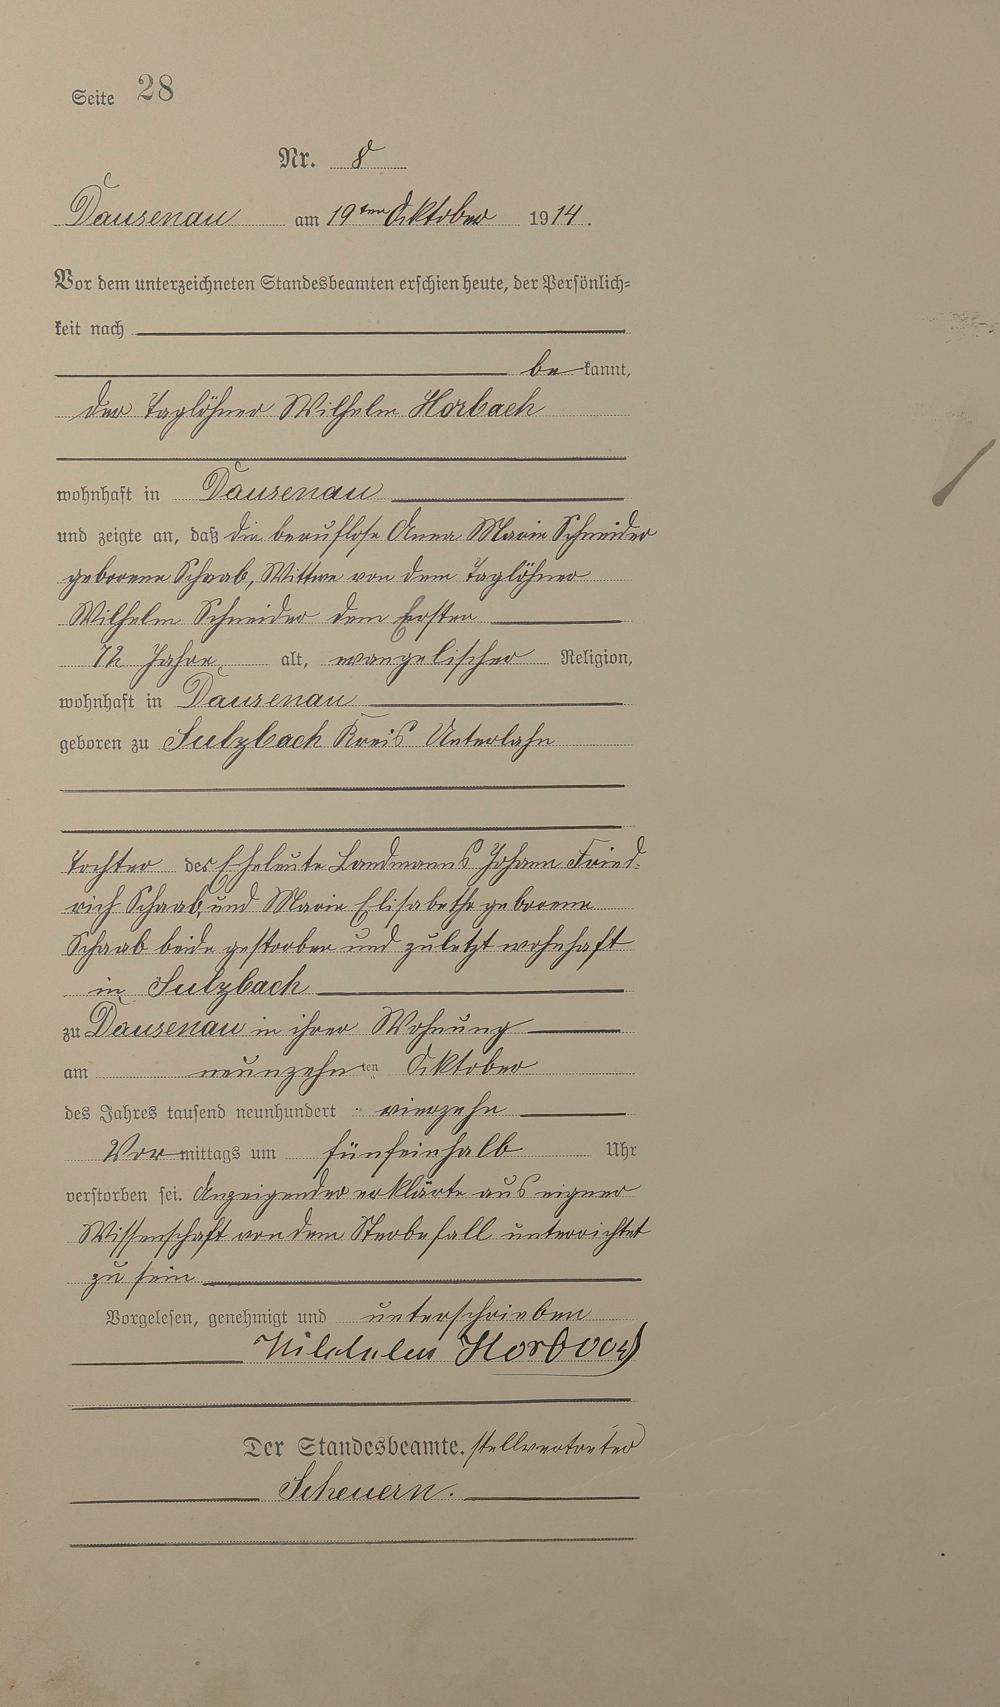 Seite 28
Nr. 8
Dausenau am 19ten Oktober 1914.
Vor dem unterzeichneten Standesbeamten erschien heute, der Persönlich-
keit nach
be kannt,
der Taglöhner Wilhelm Horbach
wohnhaft in Dausenau
und zeigte an, daß die beruflose Anna Marie Schneider
geborene Schaab, Wittwe von dem Taglöhner
Wilhelm Schneider dem Ersten
72 Jahre, alt, evangelischer Religion,
wohnhaft in Dausenau
geboren zu Sulzbach Kreis Unterlahn
Tochter der Eheleute Landmanns Johann Fried-
rich Schaab, und Marie Elisabethe geborene
Schaab beide gestorben und zuletzt wohnhaft
in Sulzbach
zu Dausenau in ihrer Wohnung
am neunzehnten Oktober
des Jahres tausend neunhundert vierzehn
Vormittags um fünfeinhalb Uhr
verstorben sei. Anzeigender erklärte aus eigner
Wissenschaft von dem Sterbefall unterrichtet
zu sein
Vorgelesen, genehmigt und unterschrieben
Wilhelm Horbach
Der Standesbeamte. stellvertreter
Scheuern.